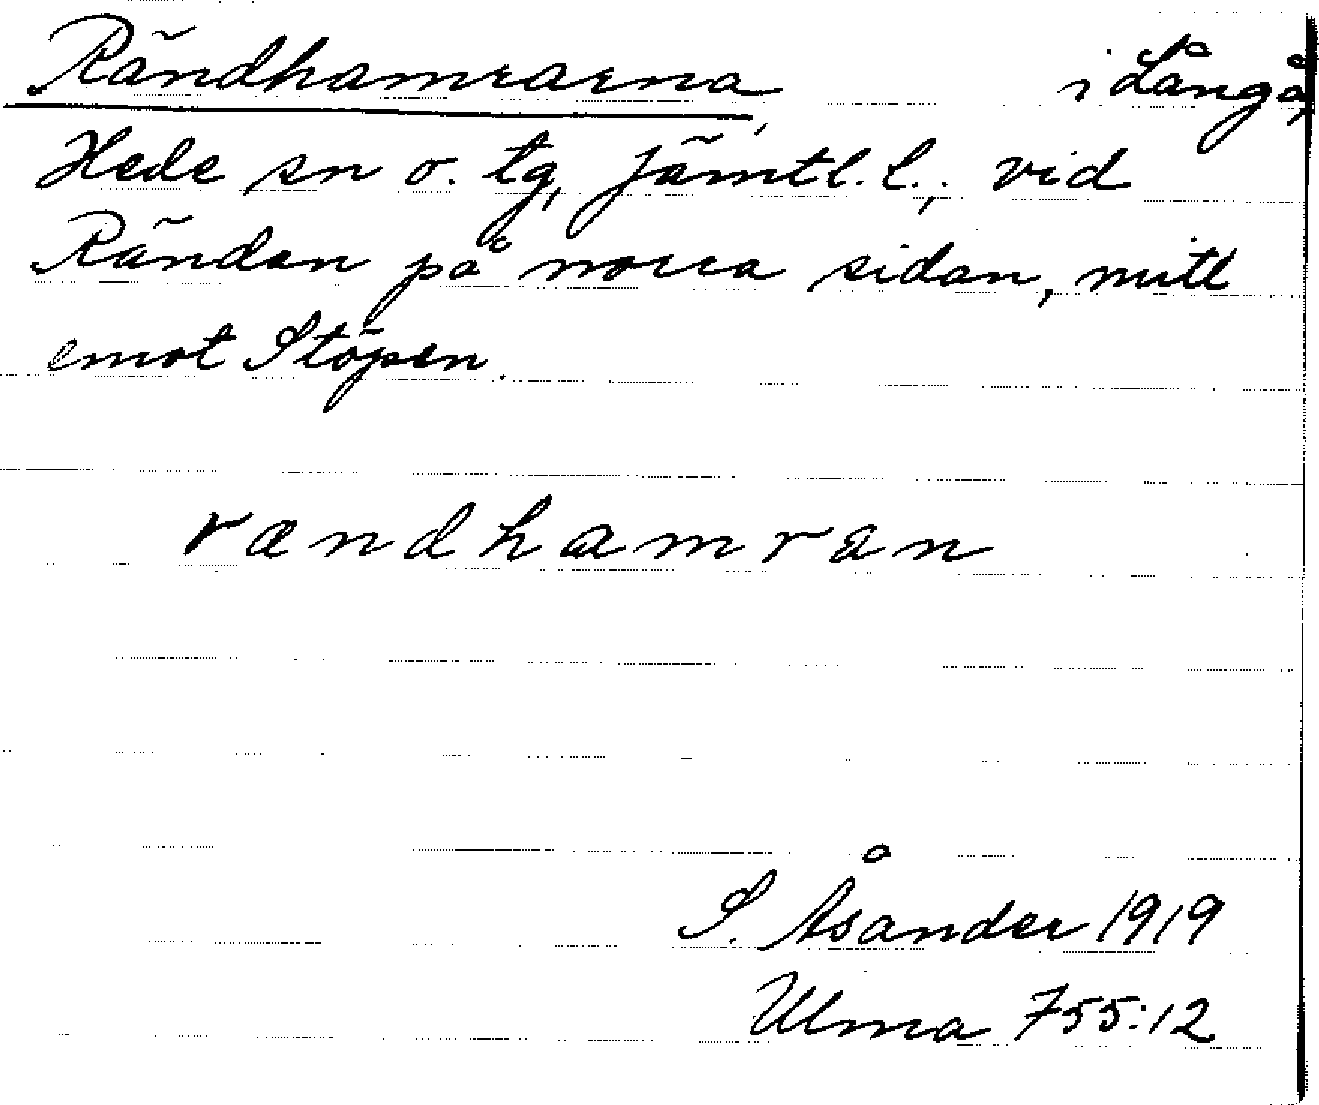 Rändhamrarna, i Långå,
Hede sn o. tg, Jämtl. l., vid
Rändan på norra sidan, mitt
emot Stöpen.
rændhamran
S. Åsander 1919
Ulma 755:12